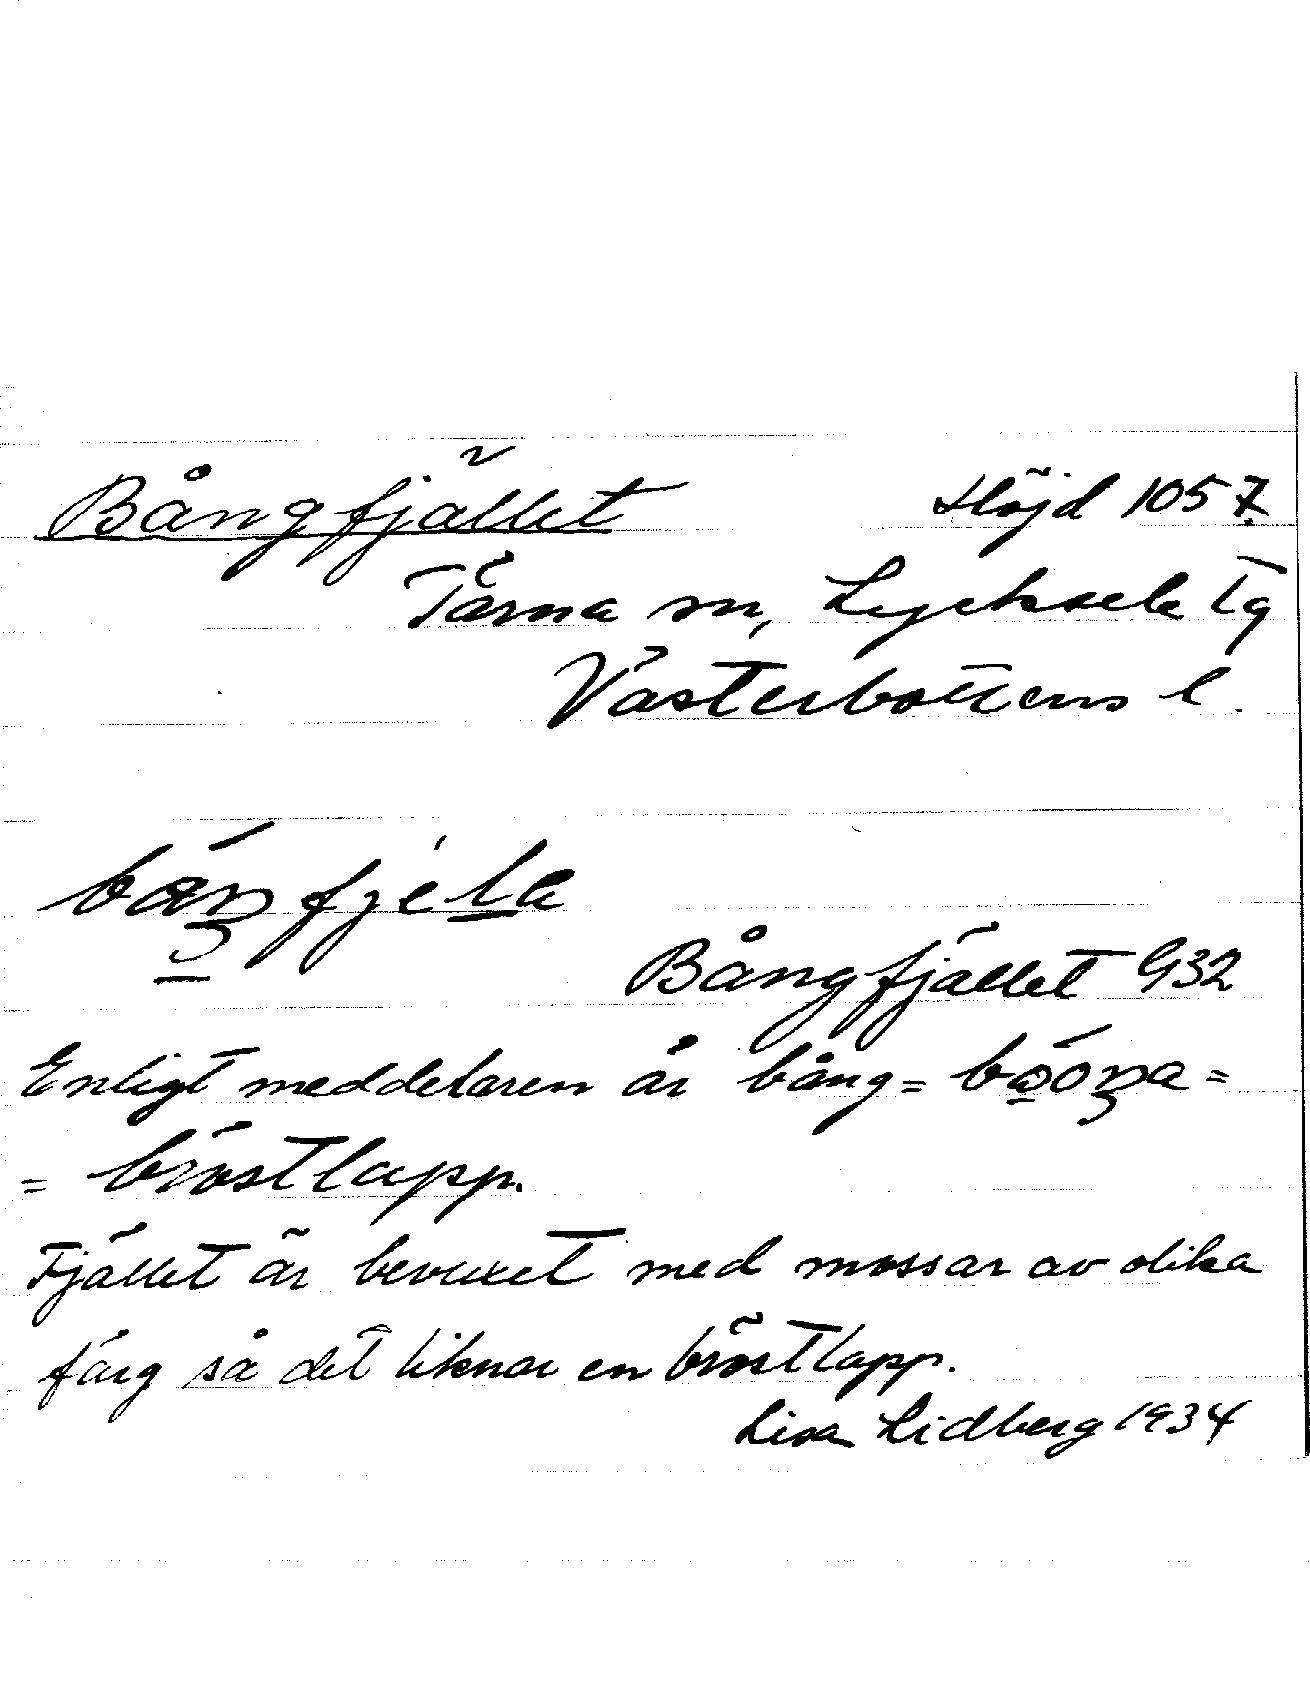 Bångfjället Höjd 1057.
Tärna sn, Lycksele Tg
Västerbottens l.
båŋfjela
Bångfjället G32
Enligt meddelaren är bång= bå̱óŋa =
= bröstlapp.
Fjället är bevuxet med mossar av olika
färg så det liknar en bröstlapp.
Lisa Lidberg 1934